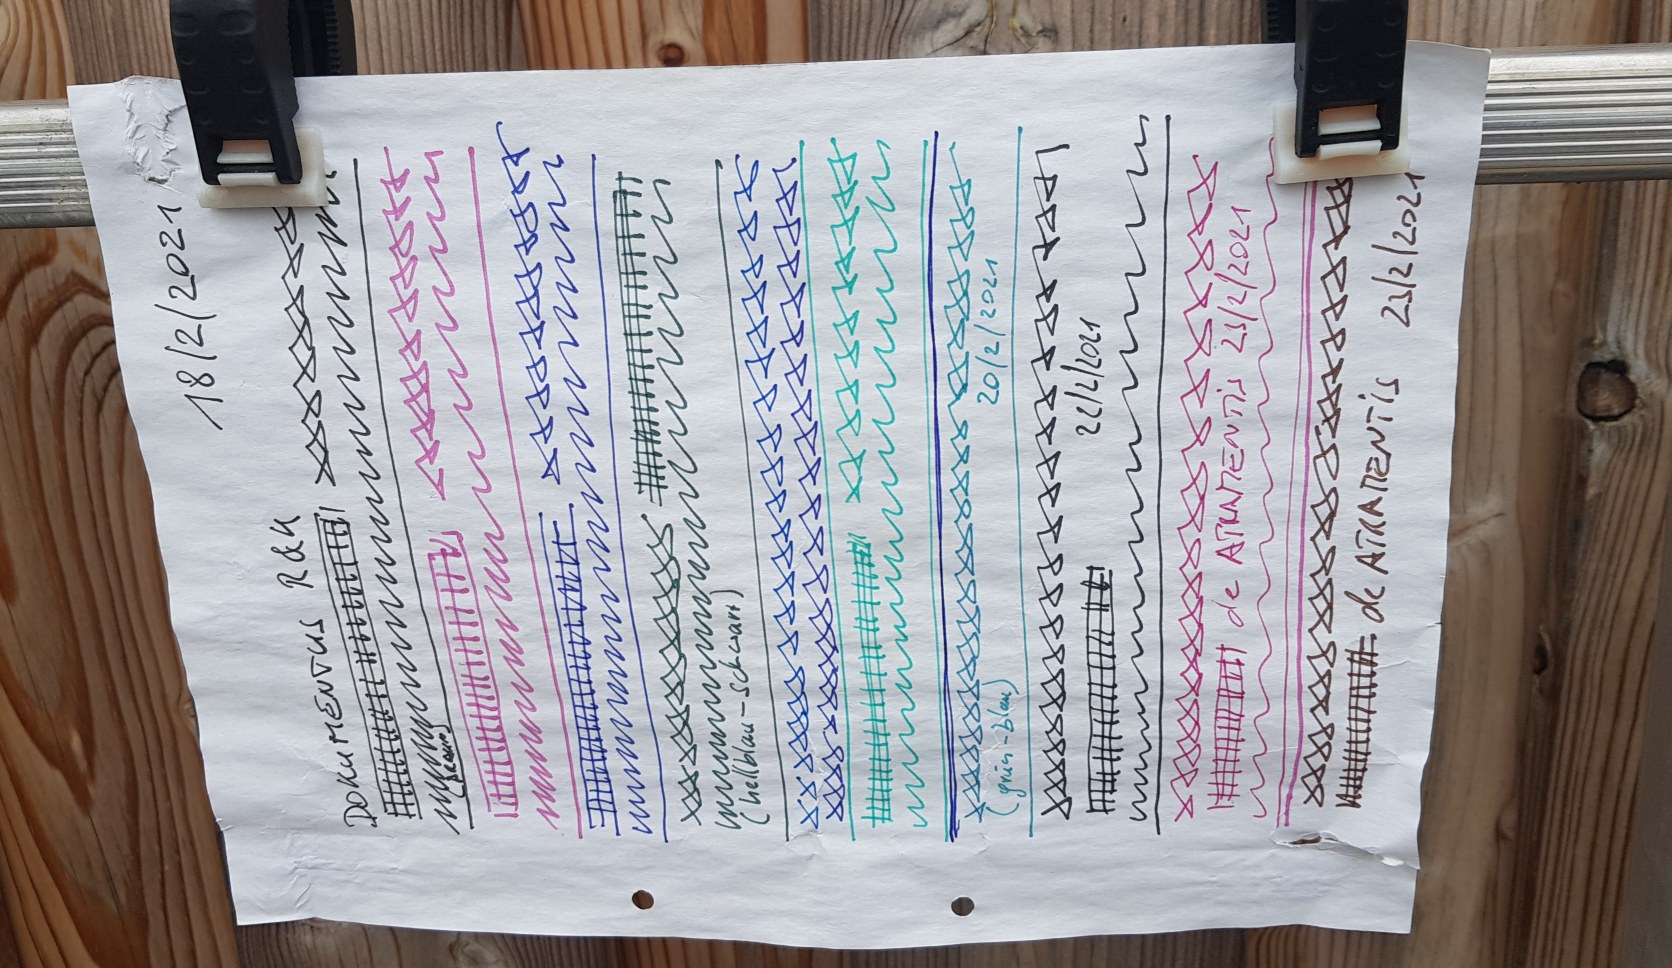 18/2/2021
DOKUMENTUS R&K
(braun)
(hellblau-schwarz)
20/2/2021
(grün-blau)
22/2/2021
de ATRAMENTIS 23/2/2021
de ATRAMENTIS 23/2/2021